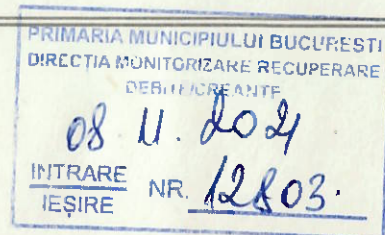 PRIMARIA MUNICIPIULUI BUCURESTI
DIRECTIA MONITORIZARE RECUPERARE
DEBITE/CREANTE
08. 11. 2021
INTRARE NR. 12803.
IESIRE